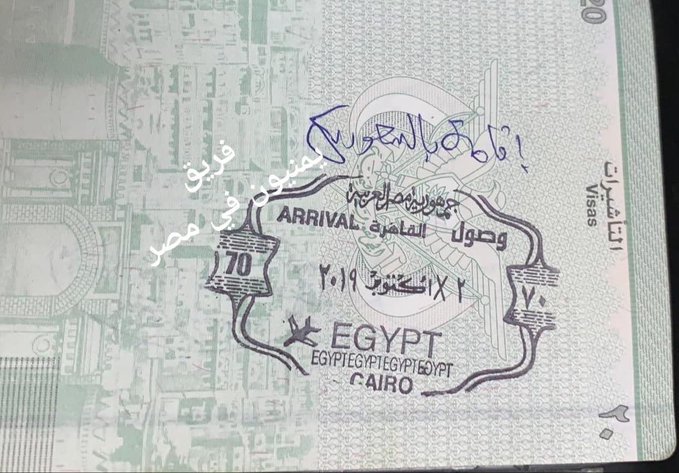 20
إقامة بالسعودية
التأشيرات
Visas
فريق
يمنيون في مصر
جمهورية مصر العربية
ARRIVAL القاهرة وصول
70
٧٠
أكتوبر ٢٠١٩
EGYPT
EGYPTEGYPTEGYPTEGYPT
CAIRO
٢٠